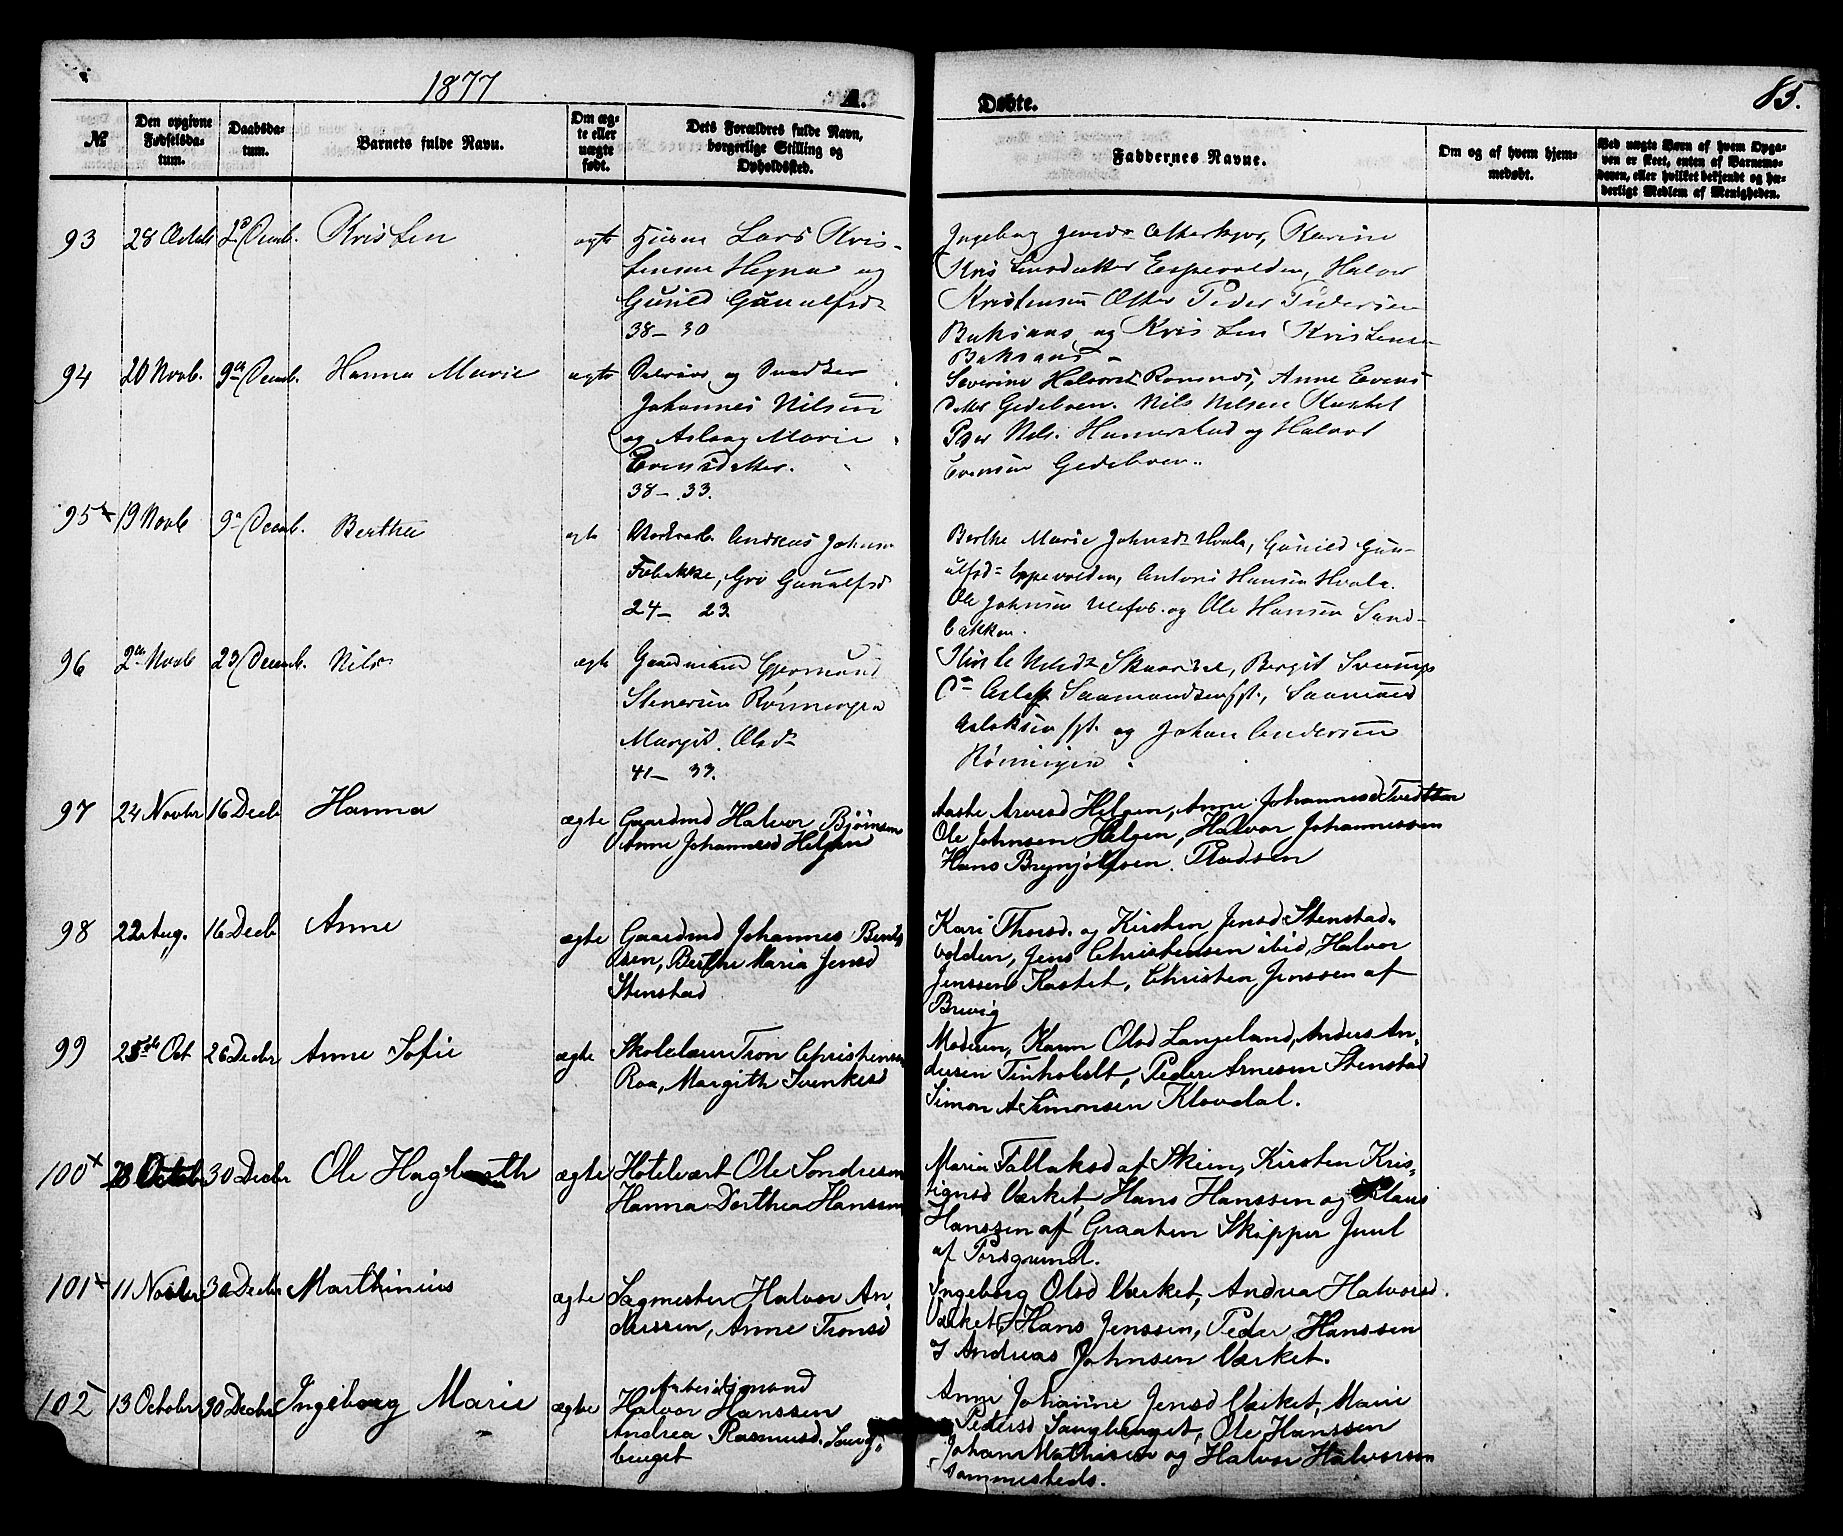 1877
A.
Døbte.
85.
№
Den opgivne Fødselsdatum.
Daabsdatum.
Barnets fulde Navn.
Om ægte eller uægte født.
Dets Forældres fulde Navn, borgerlige Stilling og Opholdssted.
Faddernes Navne.
Om og af hvem hjemmedøbt.
Ved uægte Børn af hvem Opgaven er skeet, enten af Barnemoderen, eller hvilket bekjendt og hæderligt Medlem af Menigheden.
93 28 Octob 2d Decmb. Kristen ægte Husm Lars Kris-
tensen Hegna og
Gunild Gunulfsd
38 - 30
Kristensdatter Espevolden, Halvor
Kristensen Peder Pedersen
Baksaas og Kristen Kristensen
Baksaas
94 20 Novb. 9de Decmb. Hanna Marie ægte og Snedker
Johannes Nilsen
og Aslaug Marie
Evensdatter.
38 - 33.
Severine Halvorsd Romsnes, Anne Evens
datter Gedeboen. Nils Nilsen Kastet
Peder Nils. Hamerstad og Halvor
Evensen Gedeboen.
95 x 19 Novb 9de Decmb. Berthe ægte Andreas Johnsen
Gro Gunulfsd
24 - 23
Berthe Marie Johnsd Hvala, Gunild Gun-
ulfsd Espevolden, Antoni Hansen Hvala.
Ole Johnsen Ulefos. og Ole Hansen Sand-
bakken.
96 2den Novb 23 Decemb. Nils ægte Gaardmand Gjermund
Stenersen Rønningen
Margit Olsd
41 - 33.
Saamund
Aslaksen og Johan Andersen
Rønningen
97 24 Novbr 16 Decb Hanna ægte Gaardmd Halvor Bjørnsen
Anne Johannesd Helgen
Aaste Arvesd Helgen, Anne Johannesd Tvedten
Ole Johnsen Helgen, Halvor Johannessen
Hans Brynjolfsen.
98 22 Aug. 16 Decb Anne ægte Gaardmd Johannes Bents
sen, Berthe Maria Jensd
Stenstad
Kari Thorsd. og Kirsten Jensd Stenstad-
volden, Jens Christensen ibid, Halvor
Jenssen Kastet, Christen Jenssen af
Brevig
99 25de Oct 26 Decbr Anne Sofie ægte Skolelærer Tron Christensen
Roa, Margith Svenkesd
Moderen, Karen Olsd Langeland, Anders An-
dersen Tinholdt, Peder Arnesen Stenstad
Simon A Simonsen Klovdal.
100 x 28 Octob 30 Decbr Ole Hagbarth ægte Hotelvært Ole Sondresen
Hanna Dorthea Hanssen
Maria Tallaksd af Skien, Kirsten Kris-
tignsd Værket, Hans Hanssen og Klaus
Hanssen af Graaten Skipper Juul
af Porsgrund.
101 x 11 Novbr 30 Decbr Marthinius ægte Sagmester Halvor An-
dersen, Anne Tronsd
Ingeborg Olsd Værket, Andrea Halvorsd.
Værket, Hans Jenssen, Peder Hanssen
& Andreas Johnsen Værket.
102 13 October 30 Decbr Ingeborg Marie ægte Arbeidsmand
Halvor Hanssen
Andrea Rasmusd. Saug-
benget
Anne Johanne Jensd Værket, Marie
Pedersd Saugbenget, Ole Hanssen
Johan Mathisen og Halvor Halvorsen
sammesteds.